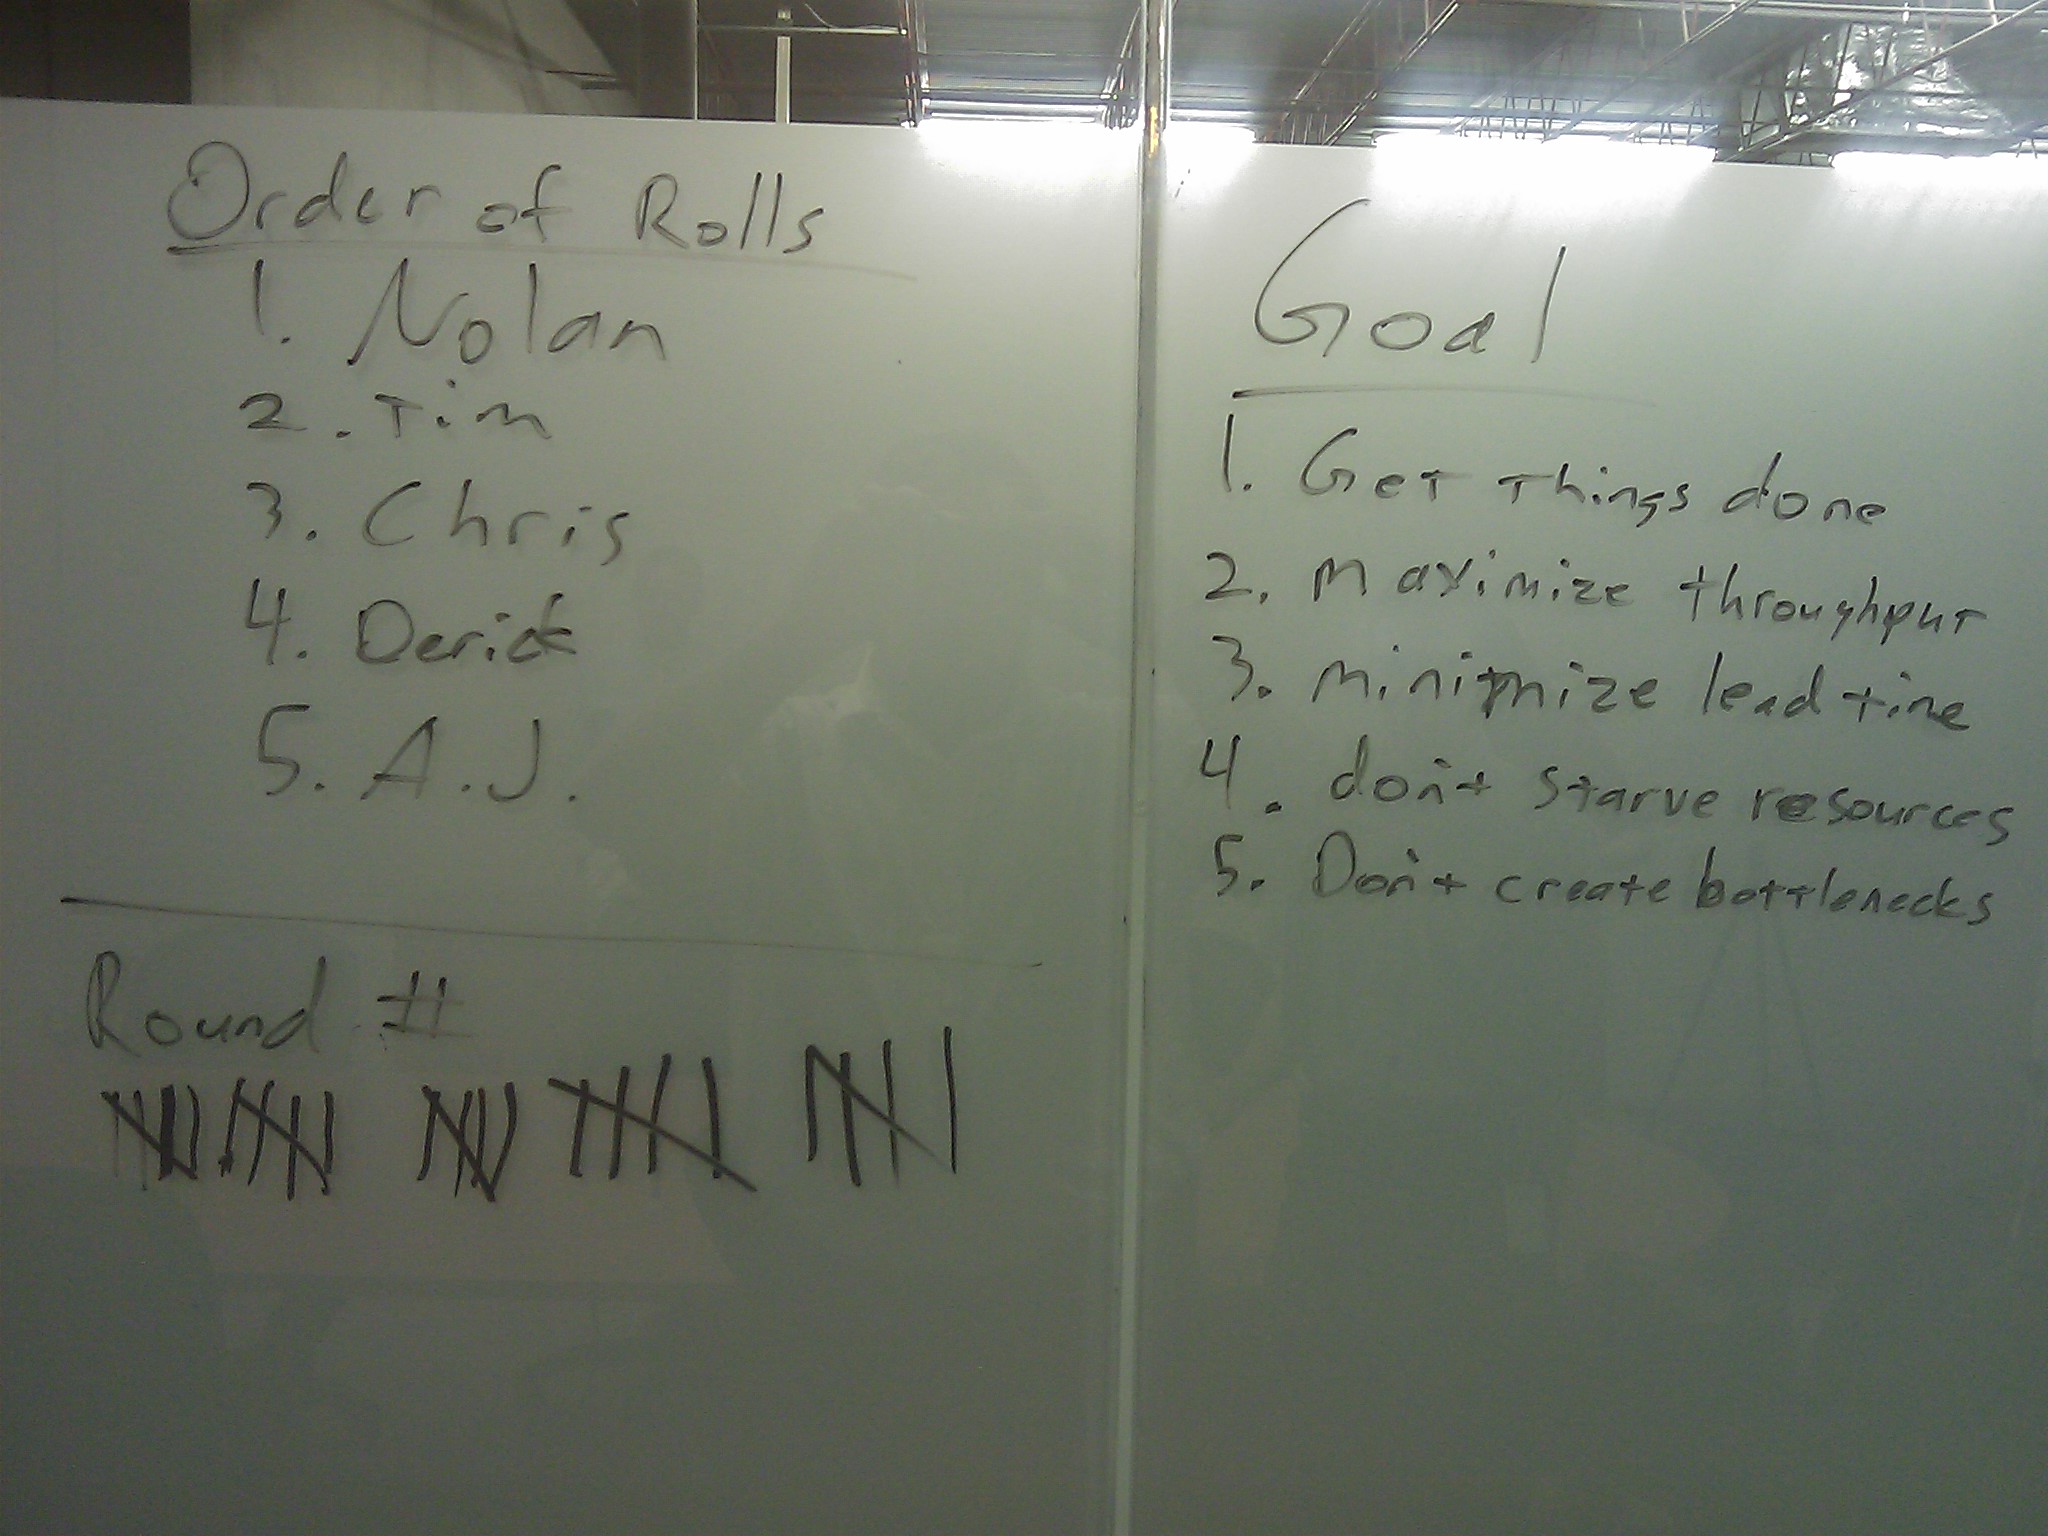 Order of Rolls
1. Nolan
2. Tim
3. Chris
4. Derick
5. A.J.
Round #
Goal
1. Get things done
2. Maximize throughput
3. minimize lead time
4. don't starve resources
5. Don't create bottlenecks